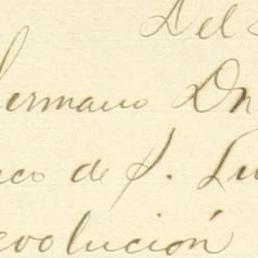 Del
hermano Dn
co de S. Lu
evolución